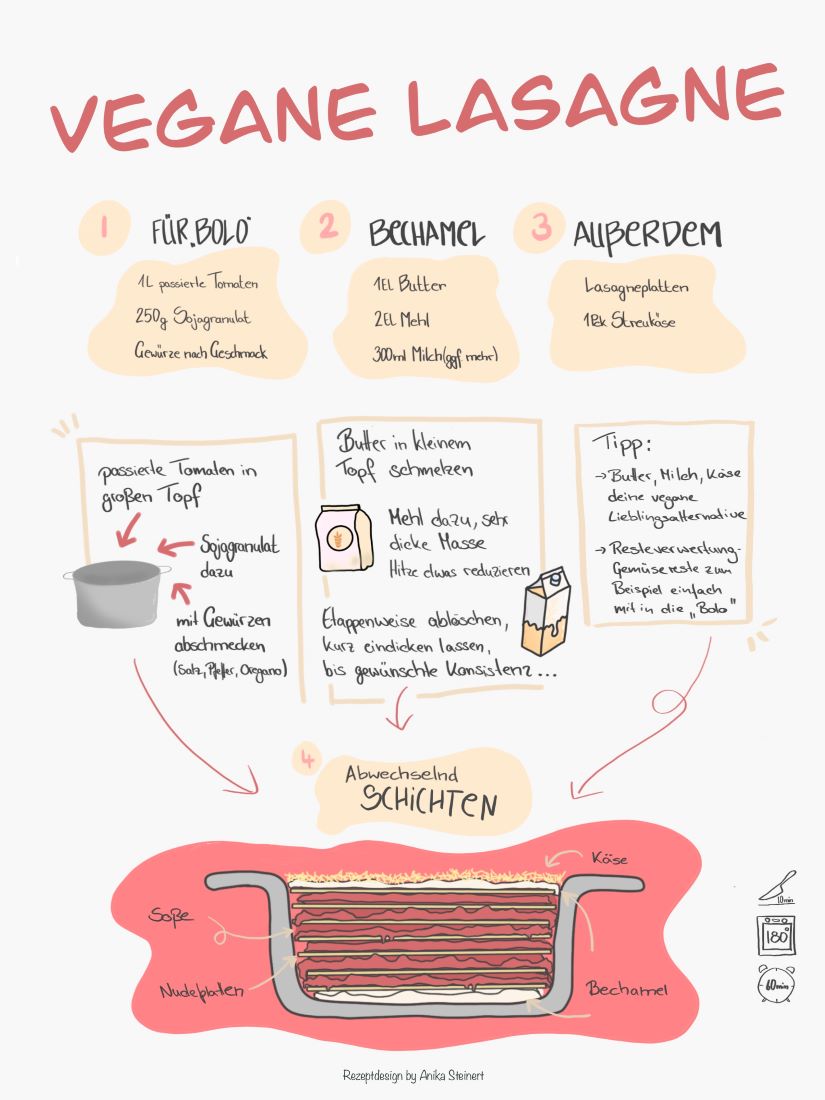 VEGANE LASAGNE
1 FÜR „BOLO"
1L passierte Tomaten
250g Sojagranulat
Gewürze nach Geschmack
2 BECHAMEL
1EL Butter
2EL Mehl
300ml Milch (ggf mehr)
3 AUßERDEM
Lasagneplatten
1Pck Streukäse
passierte Tomaten in
großen Topf
Sojagranulat
dazu
mit Gewürzen
abschmecken
(Salz, Pfeffer, Oregano)
Butter in kleinem
Topf schmelzen
Mehl dazu, sehr
dicke Masse
Hitze etwas reduzieren
Etappenweise ablöschen,
kurz eindicken lassen,
bis gewünschte Konsistenz...
Tipp:
→ Butter, Milch, Käse
deine vegane
Lieblingsalternative
→ Resteverwertung-
Gemüsereste zum
Beispiel einfach
mit in die „Bolo"
4 Abwechselnd
SCHICHTEN
Käse
Soße
Nudelplatten
Bechamel
10min
180°
60min
Rezeptdesign by Anika Steinert